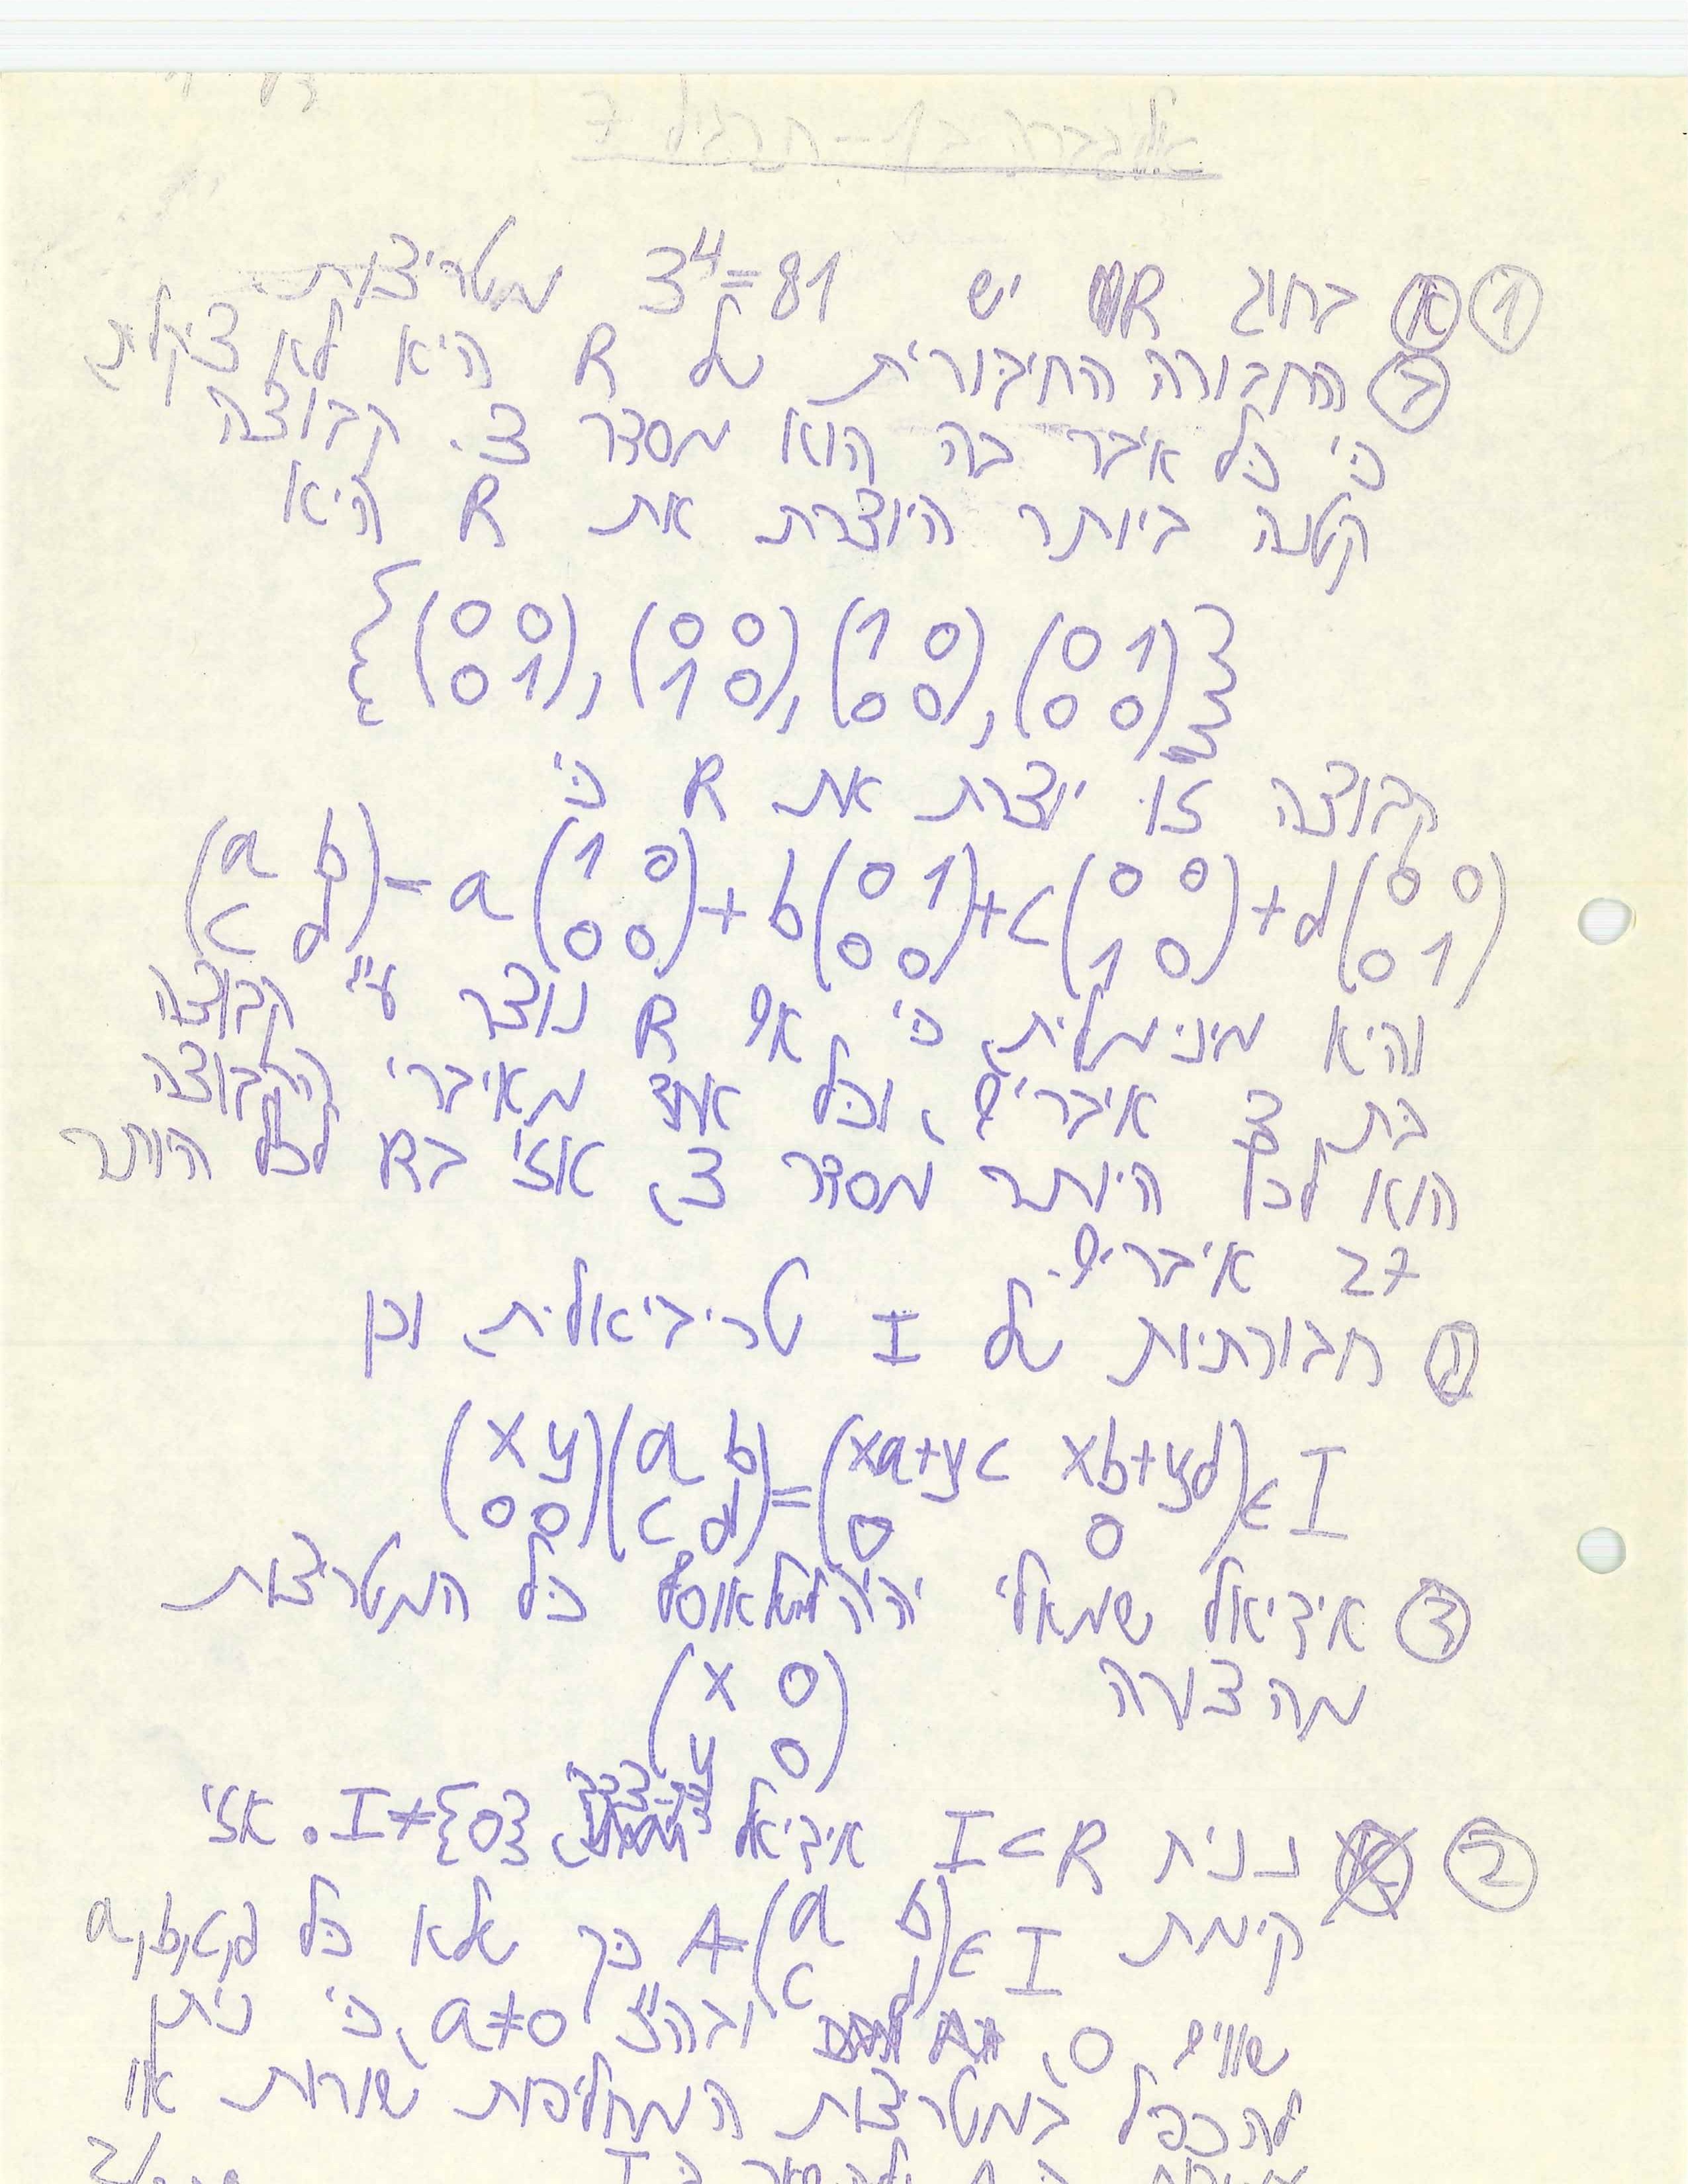 אלגברה ב1 - תרגיל 7
① א בחוג R יש 3⁴=81 מטריצות.
ב החבורה החיבורית של R היא לא ציקלית,
כי כל איבר בה הוא מסדר 3. קבוצה
קטנה ביותר היוצרת את R היא
{(0 0; 0 1), (0 0; 1 0), (1 0; 0 0), (0 1; 0 0)}
קבוצה זו יוצרת את R כי
(a b; c d) = a(1 0; 0 0) + b(0 1; 0 0) + c(0 0; 1 0) + d(0 0; 0 1)
והיא מינימלית, כי אם R נוצר ע"י קבוצה
בת 3 איברים, וכל אחד מאיברי הקבוצה
הוא לכל היותר מסדר 3, אזי בR לכל היותר
27 איברים.
ג חבורתיות של I טריביאלית, וכן
(x y; 0 0)(a b; c d) = (xa+yc xb+yd; 0 0) ∈ I
③ אידיאל שמאלי יהיה אוסף כל המטריצות
מהצורה
(x 0; y 0)
② נניח I⊂R אידיאל, {0}≠I. אזי
קיימת A(a b; c d)∈I כך שלא כל a,b,c,d
שווים 0, ובה"כ a≠0, כי ניתן
להכפיל במטריצות המחליפות שורות או